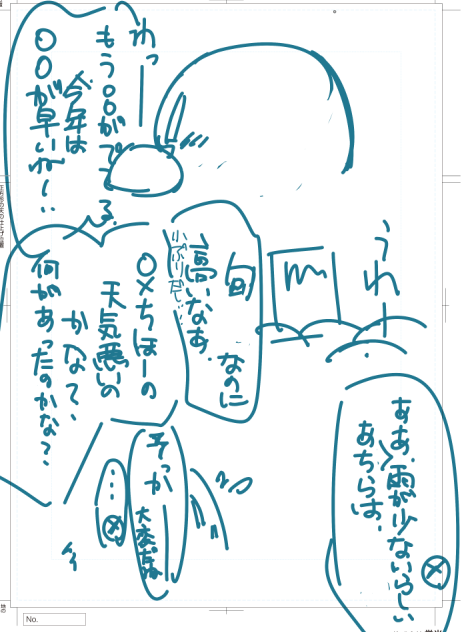 わっー
もう〇〇がでてる。
今年は
〇〇が早いね！
うれー
旬
なのに
高いなあ。
小ぶりだし…
〇×ちほーの
天気悪いの
かな？、
何があったのかな？
ああ、雨が少ないらしい
あちらは、
そっかー
大変だね
…
No.